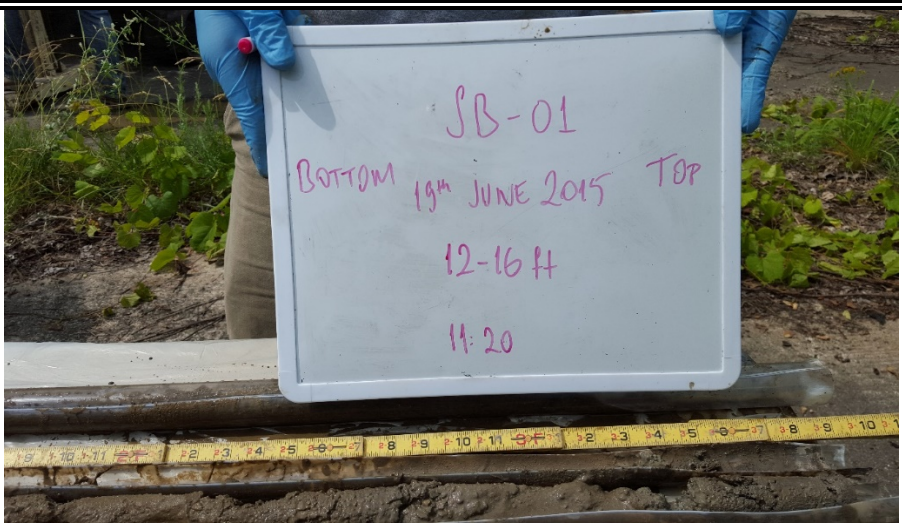 SB-01
BOTTOM 19th JUNE 2015 TOP
12-16 ft
11:20
9 10 11 2F 1 2 3 4 5 6 7 8 9 10 11 3F 1 2 3 4 5 6 7 8 9 10 1